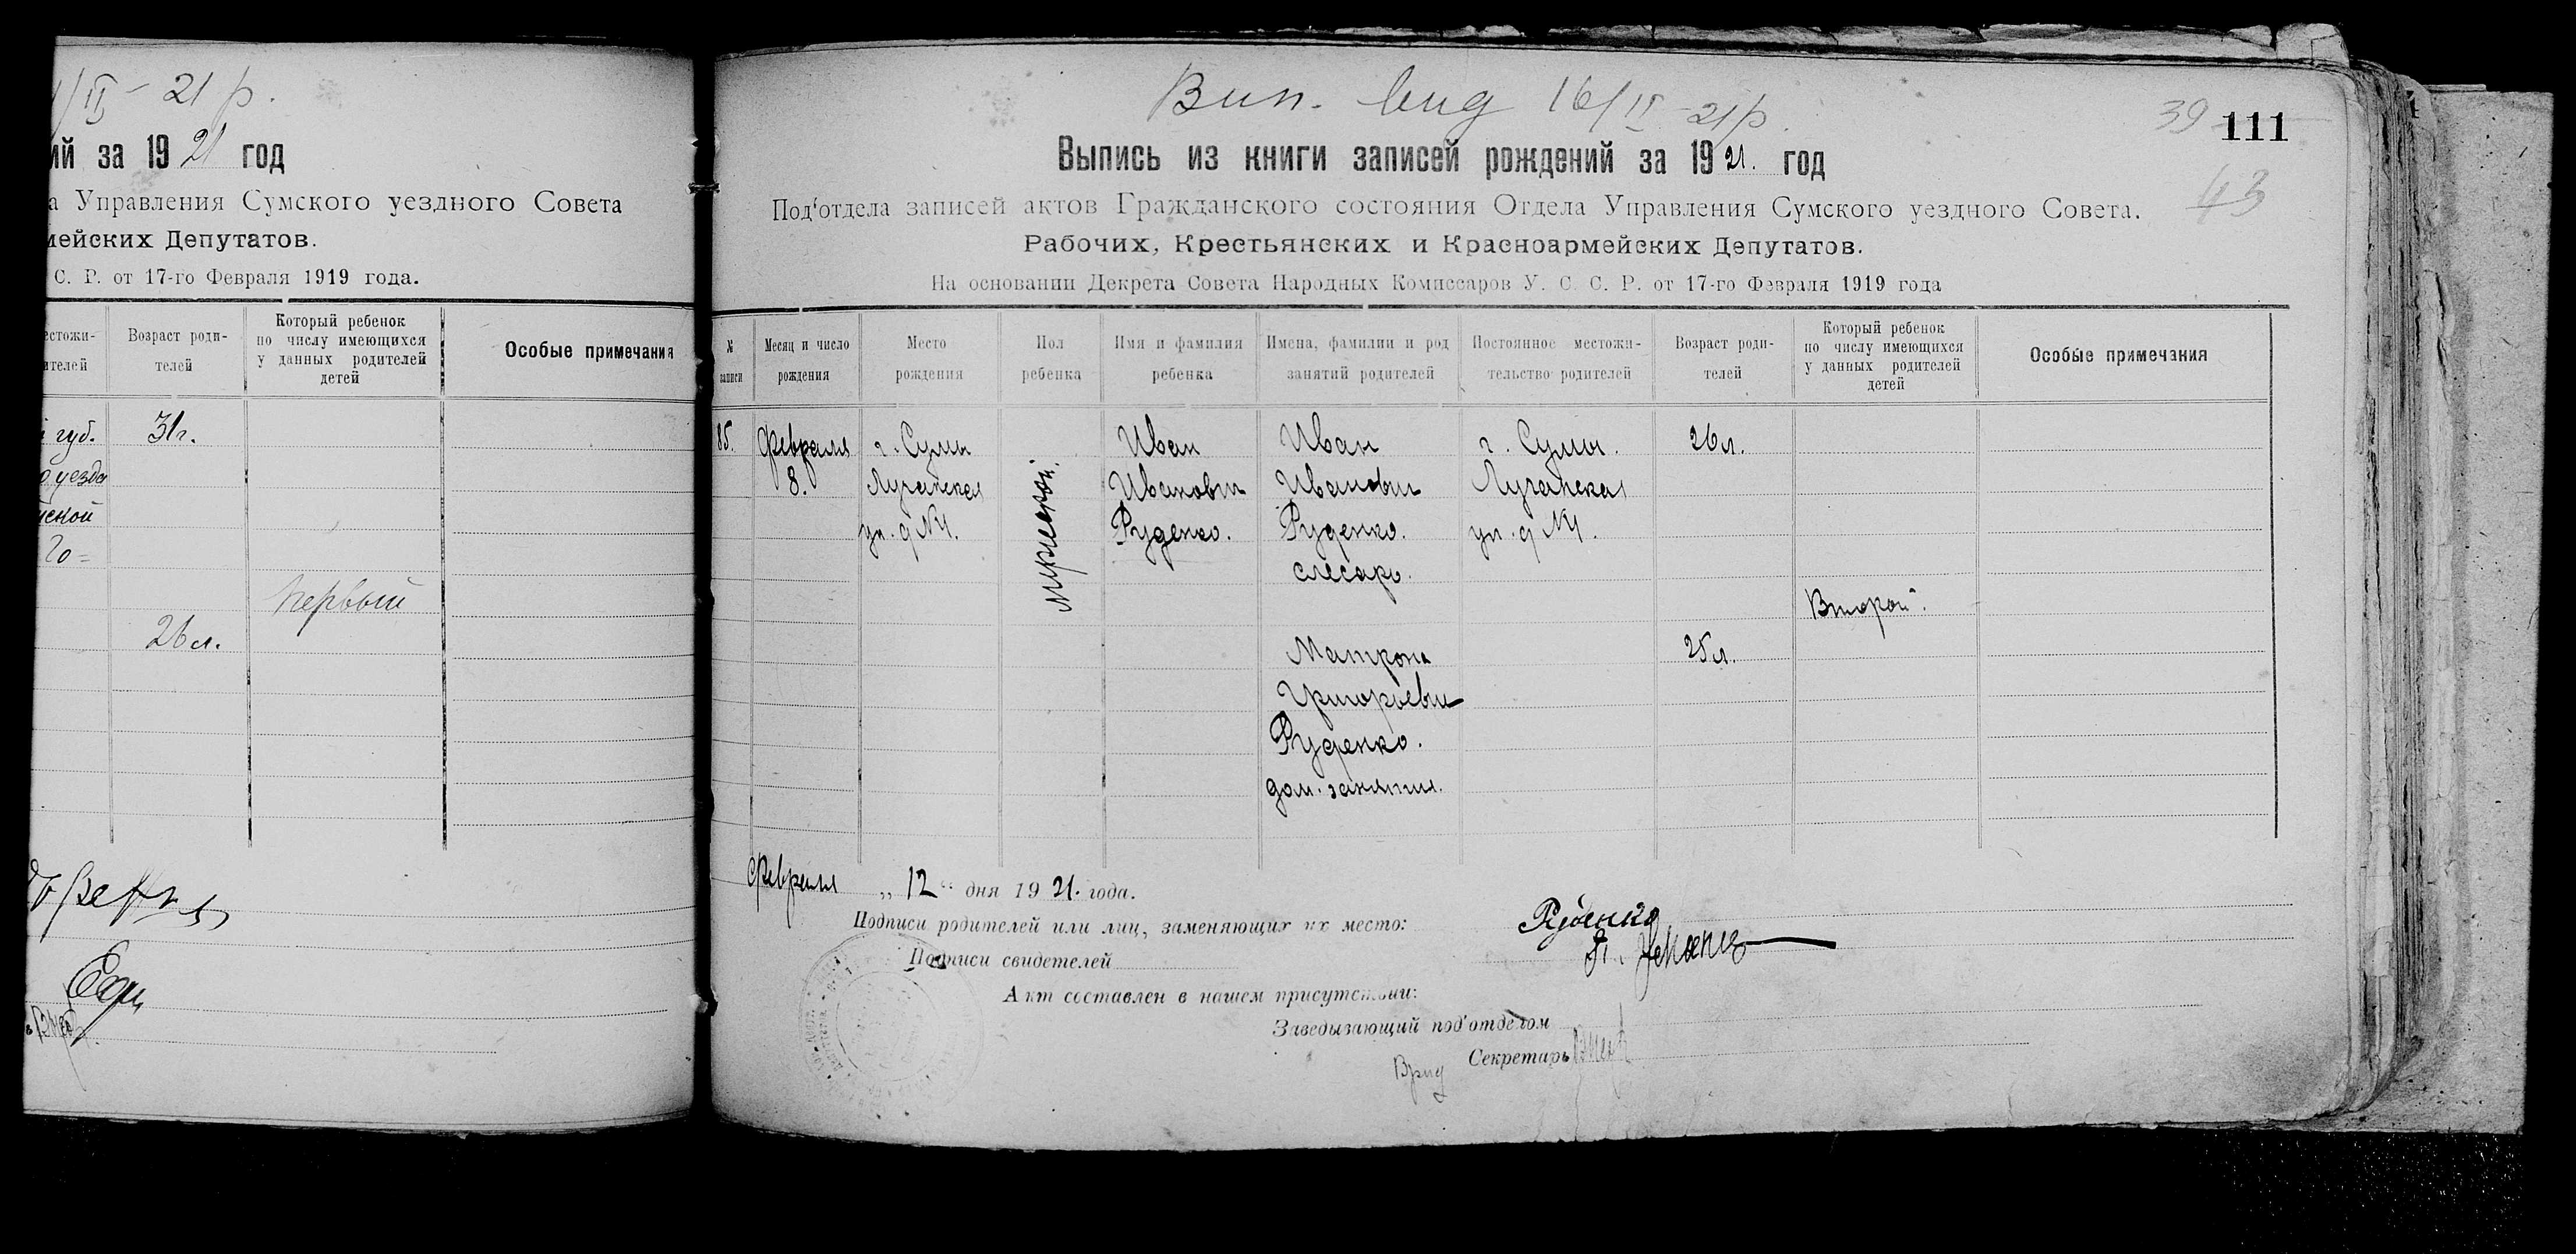 /II - 21 р.
ий за 1921 год
а Управления Сумского уездного Совета
мейских Депутатов.
С. Р. от 17-го Февраля 1919 года.
естожи-
ителей
Возраст роди-
телей
Который ребенок
по числу имеющихся
у данных родителей
детей
Особые примечания
губ.
31 г.
уезда
ской
первый
26 л.
Вип. вид 16/II 21 р.
39 111
43
Выпись из книги записей рождений за 1921. год
Под'отдела записей актов Гражданского состояния Отдела Управления Сумского уездного Совета.
Рабочих, Крестьянских и Красноармейских Депутатов.
На основании Декрета Совета Народных Комиссаров У. С. С. Р. от 17-го Февраля 1919 года
№
записи
Месяц и число
рождения
Место
рождения
Пол
ребенка
Имя и фамилия
ребенка
Имена, фамилии и род
занятий родителей
Постоянное местожи-
тельство родителей
Возраст роди-
телей
Который ребенок
по числу имеющихся
у данных родителей
детей
Особые примечания
85.
Февраля
8.
г. Сумы
Луганская
ул. д №1.
мужеской.
Иван
Иванович
Руденко.
Иван
Иванович
Руденко.
слесарь.
Матрона
Григорьевн
Руденко.
дом. занятия.
г. Сумы.
Луганская
ул. д №1.
26 л.
25 л.
Второй.
Февраля „ 12 “ дня 1921. года.
Подписи родителей или лиц, заменяющих их место: Руденко
Подписи свидетелей
Акт составлен в нашем присутствии:
Заведызающий под'отделом
Врид Секретарь